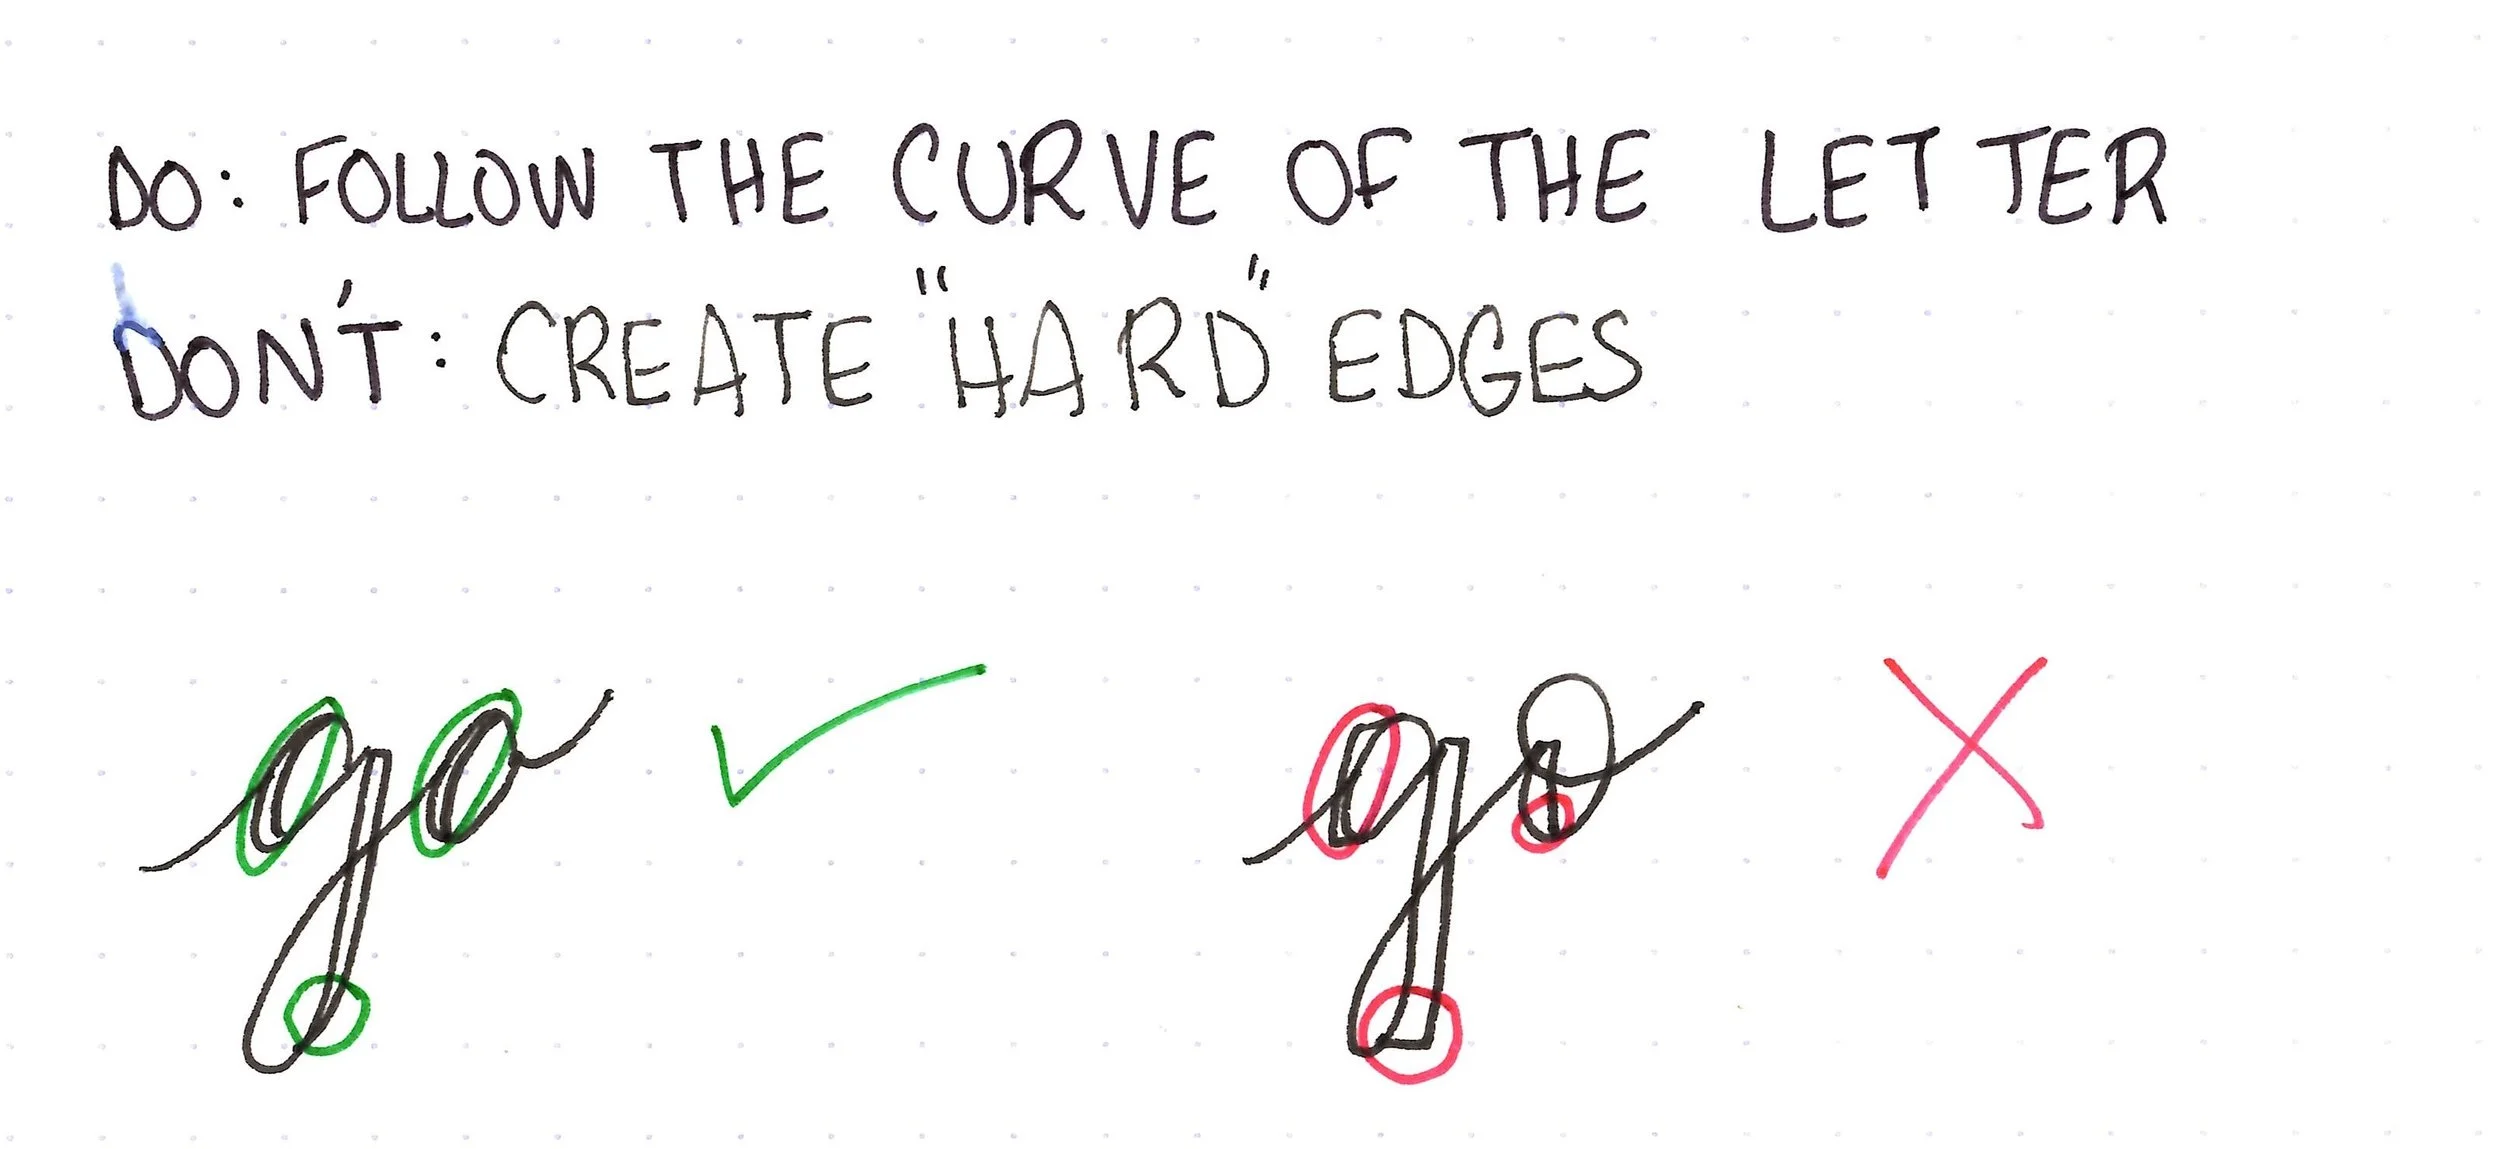 DO: FOLLOW THE CURVE OF THE LETTER
DON'T: CREATE "HARD" EDGES
go go